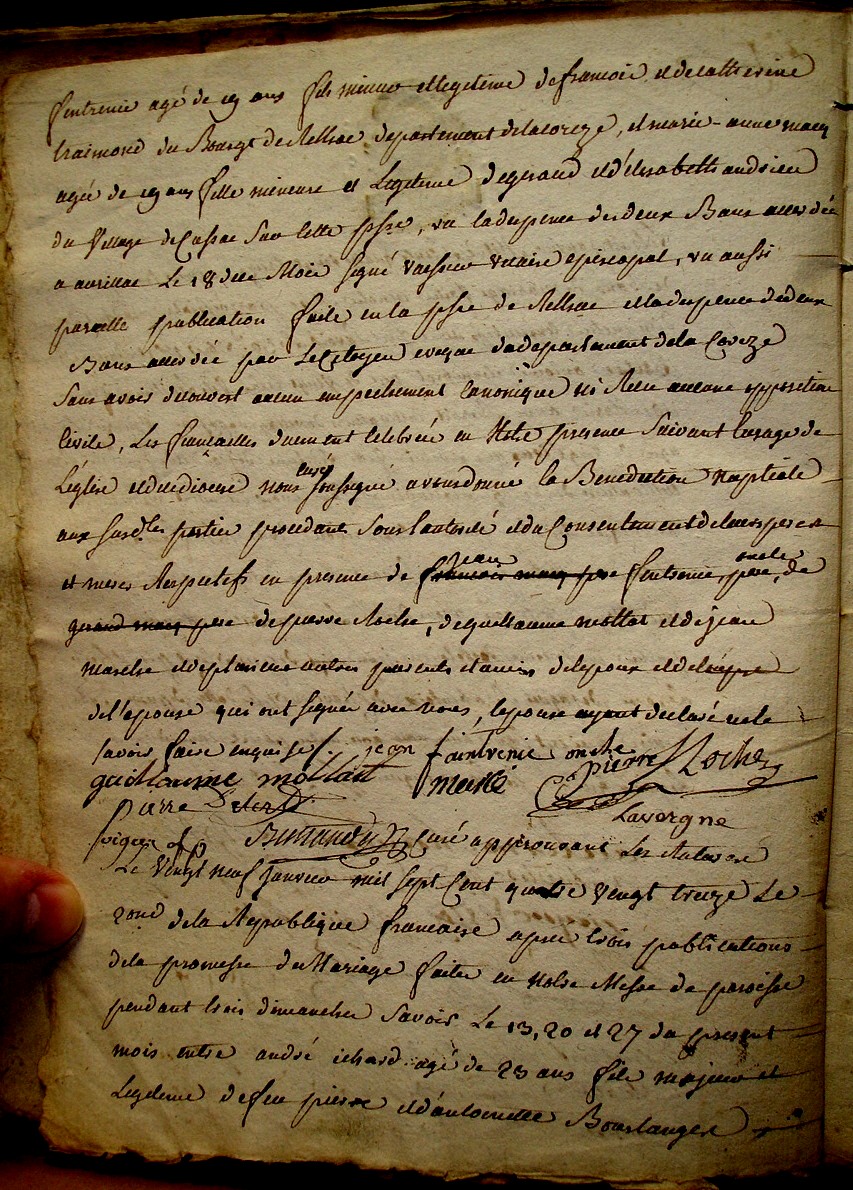 fintrenie agé de 19 ans fils mineur et legitime de francois et de catherine
traimond du Bourgt de Rilhac departement de la coreze, et marie-anne maurs
agée de 19 ans fille mineure et Legitime de geraud et d'élisabeth andrieu
du village de Cussac sur cette psse, vu la dispence de deux Bans accordée
a aurillac Le 18 dud Mois signé vicaire episcopal, vu aussi
pareille publication faite en la psse de Rilhac et la dispence de deux
Bans accordée par Le Citoyen eveque du departement de la Coreze
Sans avoir decouvert aucun empechement canonique ni Recu aucune opposition
civile, Les fiançailles duement celebrées en Notre presence Suivant l'usage de
L'église et du diocese nous curé soussigné avons donné la Benediction Nuptiale
aux susdtes parties procedant sous l'autorité et du Consentement de leurs peres
et meres Respectifs en presence de jean fintrenie, oncle, de
de pierre Roche, de guillaume mollat et de jean
marche et de plusieurs autres parents et amis de l'epoux et de
de l'epouse qui ont signé avec nous, l'epouse ayant declaré ne le
savoir faire enquise /. jean faintrenie oncle
guillaume mollat Pierre Roche
Pierre Lavergne
curé approuvant Les Ratures
Le vingt neuf janvier mil sept Cent quatre vingt treize Le
2ond de la Republique francaise apres trois publications
de la promesse de Mariage faites en notre Messe de paroisse
pendant trois dimanches Savoir Le 13, 20 et 27 du present
mois entre andré ichard agé de 23 ans fils majeur et
Legitime de feu pierre et d'antoinette Bourlanger